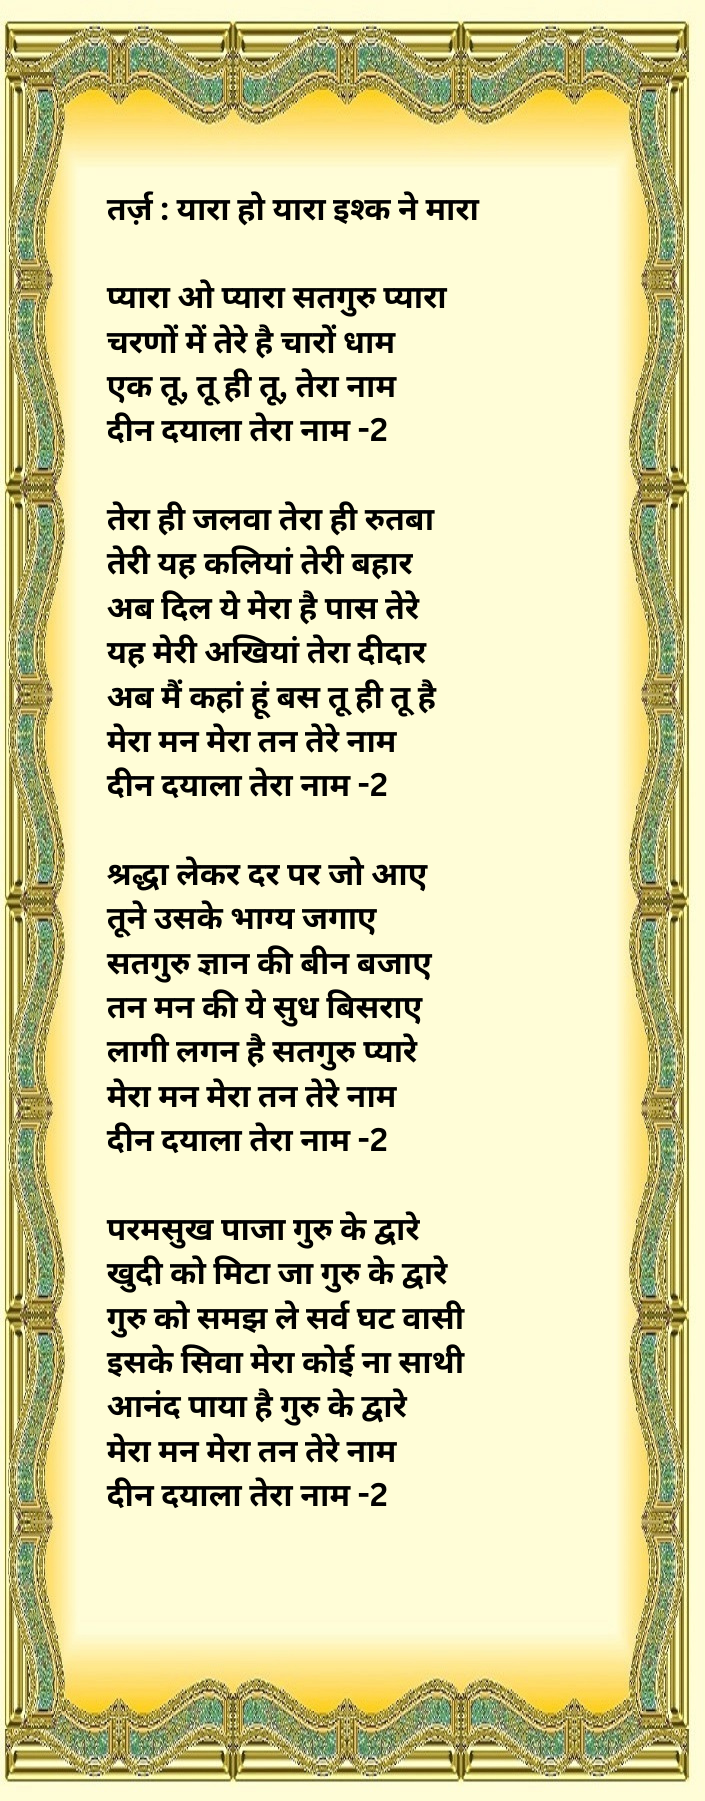 तर्ज़ : यारा हो यारा इश्क ने मारा
प्यारा ओ प्यारा सतगुरु प्यारा
चरणों में तेरे है चारों धाम
एक तू, तू ही तू, तेरा नाम
दीन दयाला तेरा नाम -2
तेरा ही जलवा तेरा ही रुतबा
तेरी यह कलियां तेरी बहार
अब दिल ये मेरा है पास तेरे
यह मेरी अखियां तेरा दीदार
अब मैं कहां हूं बस तू ही तू है
मेरा मन मेरा तन तेरे नाम
दीन दयाला तेरा नाम -2
श्रद्धा लेकर दर पर जो आए
तूने उसके भाग्य जगाए
सतगुरु ज्ञान की बीन बजाए
तन मन की ये सुध बिसराए
लागी लगन है सतगुरु प्यारे
मेरा मन मेरा तन तेरे नाम
दीन दयाला तेरा नाम -2
परमसुख पाजा गुरु के द्वारे
खुदी को मिटा जा गुरु के द्वारे
गुरु को समझ ले सर्व घट वासी
इसके सिवा मेरा कोई ना साथी
आनंद पाया है गुरु के द्वारे
मेरा मन मेरा तन तेरे नाम
दीन दयाला तेरा नाम -2